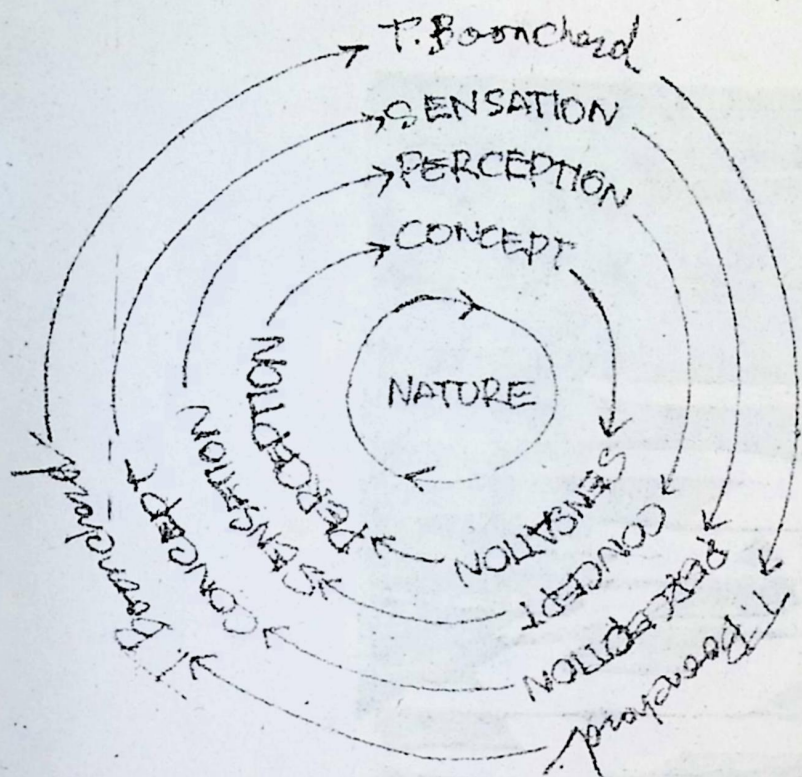 T. Boonchard
SENSATION
PERCEPTION
CONCEPT
NATURE
SENSATION
CONCEPT
PERCEPTION
T. Boonchard
PERCEPTION
SENSATION
CONCEPT
T. Boonchard